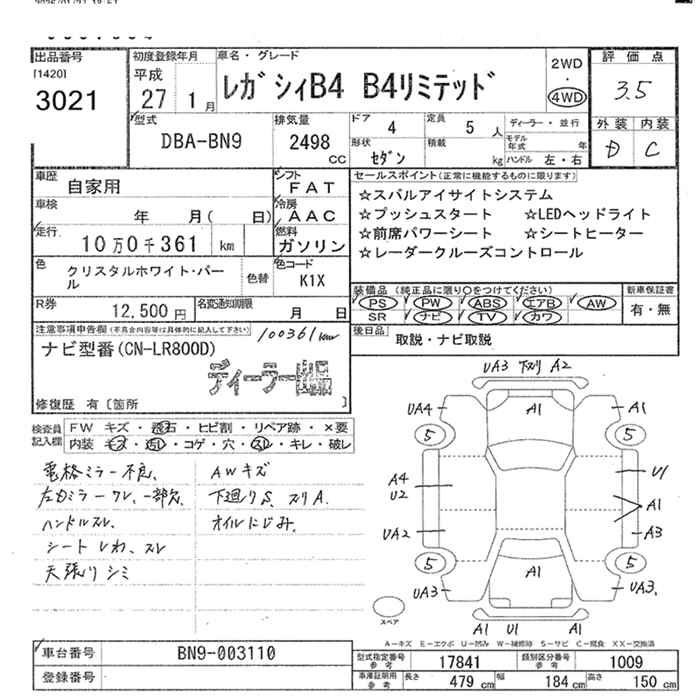 出品番号
[1420]
3021
初度登録年月
平成
27年 1月
車名・グレード
レガシィB4 B4リミテッド
2WD
・
4WD
評価点
3.5
外装 内装
D C
型式
DBA-BN9
排気量
2498
cc
ドア
4
定員
5人
形状
セダン
積載
kg
ディーラー・並行
モデル年式 年
ハンドル 左・右
車歴
自家用
車検
年 月( 日)
走行
10万0千361 km
シフト
FAT
冷房
AAC
燃料
ガソリン
色
クリスタルホワイト・パール
色替
色コード
K1X
R券
12,500円
名変通知期限
月 日
セールスポイント(正常に機能するものに限ります)
☆スバルアイサイトシステム
☆プッシュスタート ☆LEDヘッドライト
☆前席パワーシート ☆シートヒーター
☆レーダークルーズコントロール
装備品(純正品に限り○をつけてください)
PS PW ABS エアB AW
SR ナビ TV カワ
新車保証書
有・無
後日品
取説・ナビ取説
注意事項申告欄(不具合内容等は具体的に記入して下さい)
100361km
ナビ型番(CN-LR800D)
ディーラー出品
修復歴 有〔箇所 〕
検査員記入欄
FW キズ・飛石・ヒビ割・リペア跡・×要
内装 キズ・汚れ・コゲ・穴・スレ・キレ・破レ
電格ミラー不良、
左右ミラーワレ、一部欠
ハンドルスレ、
シートしわ、スレ
天張りシミ
AWキズ
下廻りS、スリA.
オイルにじみ、
UA3 下スリ A2
UA4 A1 A1
5 5
A4
U2
U1
A1
UA2
A3
5 5
UA3 A1 UA3.
スペア
A1 U1 A1
A-キズ E-エクボ U-凹み W-補修跡 S-サビ C-腐食 XX-交換済
車台番号
BN9-003110
登録番号
型式指定番号
参考
17841
類別区分番号
参考
1009
車庫証明用
参考
長さ 479cm 幅 184cm 高さ 150cm